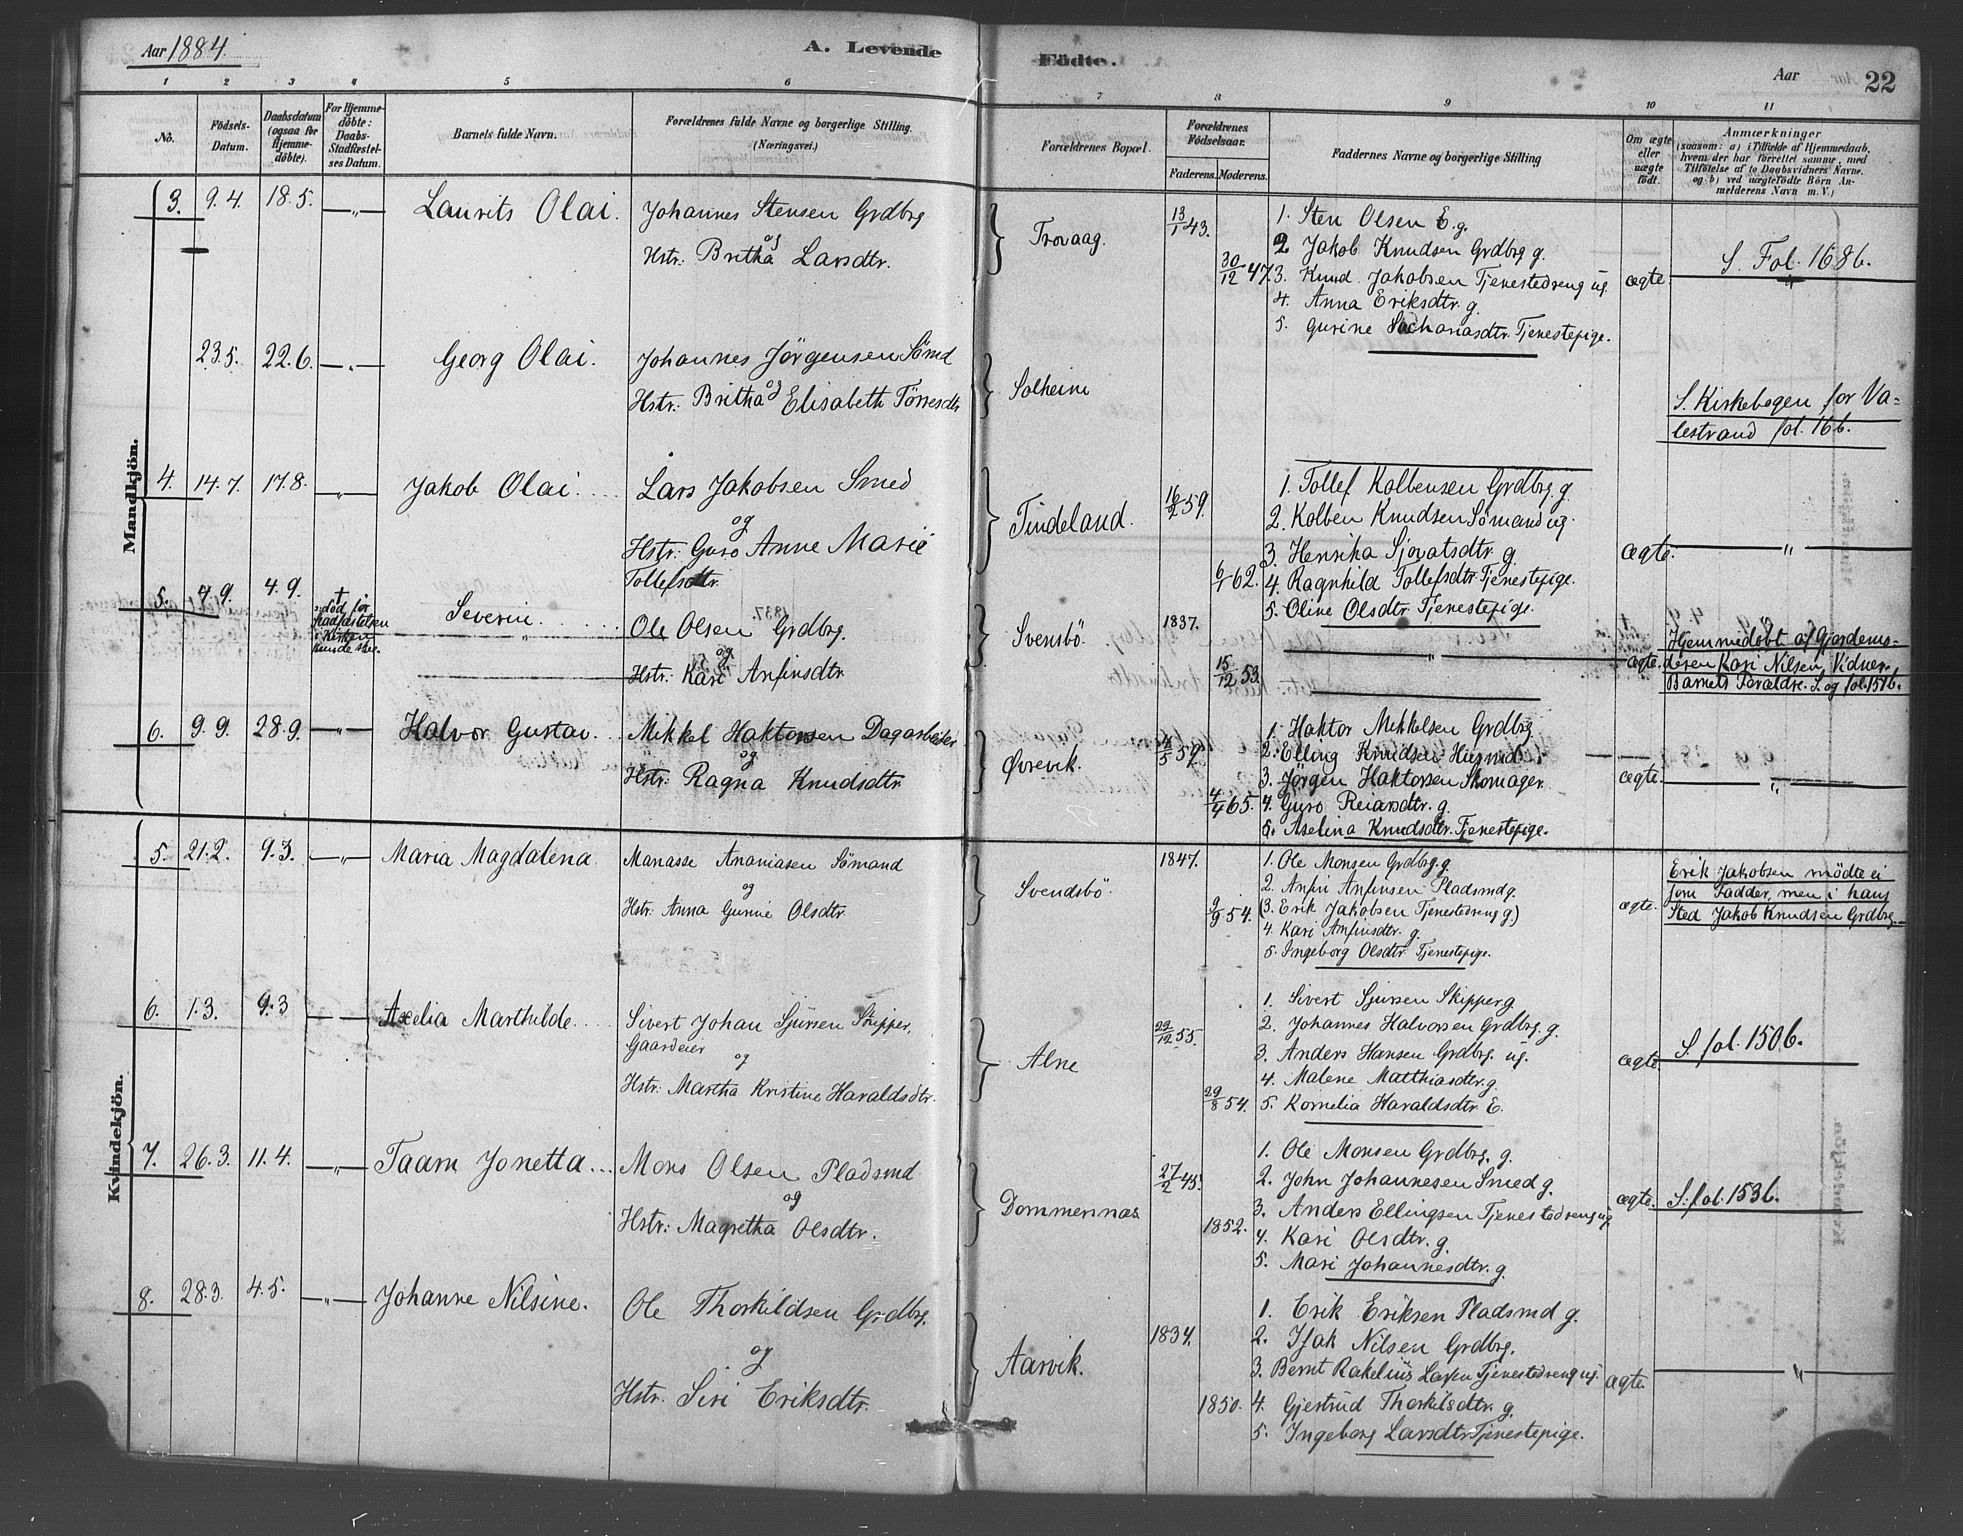 Aar 1884.
A. Levende
Födte.
Aar
22
1 2 3 4 5 6 7 8 9 10 11
No.
Födsels-
Datum.
Daabsdatum
(ogsaa for
Hjemme-
döbte).
For Hjemme-
döbte:
Daabs-
Stadfæstel-
ses Datum.
Barnets fulde Navn.
Forældrenes fulde Navne og borgerlige Stilling.
(Næringsvei.)
Forældrenes Bopæl.
Forældrenes
Födselsaar.
Faderens. Moderens.
Faddernes Navne og borgerlige Stilling
Om ægte
eller
uægte
födt.
Anmærkninger
(saasom: a) i Tilfælde af Hjemmedaab,
hvem der har forrettet samme, med
Tilföielse af to Daabsvidners Navne.
og b) ved uægtefödte Börn An-
melderens Navn m. V.)
Mandkjön.
3. 9.4. 18.5. —„— Laurits Olai. Johannes Stensen Grdbrg
og
Hstr: Britha Larsdtr.
Trovaag.
13/1 43.
30/12 47.
1. Sten Olsen E. g.
2 Jakob Knudsen Grdbrg g.
3. Knud Jakobsen Tjenestedreng ug.
4. Anna Eriksdtr. g.
5. Gurine Sachariasdtr. Tjenestepige.
ægte.
S. Fol. 168b.
23.5. 22.6. —„— Georg Olai. Johannes Jörgensen Sömd
og
Hstr: Britha Elisabeth Törresdtr
Solheim
S. Kirkebogen for Va-
lestrand fol. 16b.
4. 14.7. 17.8. —„— Jakob Olai. Lars Jakobsen Smed
og
Hstr: Guro Anne Marie
Tollefsdtr.
Tindeland.
16/2 59.
6/1 62.
1. Tollef Kolbensen Grdbrg. g.
2. Kolben Knudsen Sömand ug.
3. Henrika Sjovatsdtr. g.
4. Ragnhild Tollefsdtr Tjenestepige.
5. Oline Olsdtr Tjenestepige.
ægte. —„—
5. 4.9. 4.9. †
död før
Stadfæstelsen
i Kirken
kunde ske.
Severin. Ole Olsen Grdbrg.
og
Hstr: Kari Anfinsdtr
Svensbö.
1837.
15/12 53.
—„—
ægte.
Hjemmedöbt af Gjordemo-
deren Kari Nilsen, Vidner.
Barnets Forældre. S. og fol. 151b.
6. 9.9. 28.9. —„— Halvor Gustav. Mikkel Haktorsen Dagarbeider
og
Hstr: Ragna Knudsdtr
Øvrevik.
4/5 59.
4/4 65.
1. Haktor Mikkelsen Grdbrg
2. Elling Knudsen Husmd
3. Jørgen Haktorsen Skomager.
4. Guro Reiarsdtr. g.
5. Aselina Knudsdtr. Tjenestepige.
ægte. —„—
Kvindekjön.
5. 21.2. 9.3. —„— Maria Magdalena Manasse Ananiasen Sömand
og
Hstr: Anna Gurine Olsdtr.
Svendsbö.
1847.
9/9 54.
1. Ole Monsen Grdbrg. g.
2. Anfin Anfinsen Pladsmd g.
(3. Erik Jakobsen Tjenestedreng g)
4. Kari Anfinsdtr. g.
5. Ingeborg Olsdtr Tjenestepige.
ægte.
Erik Jakobsen mödte ei
som Fadder, men i hans
Sted Jakob Knudsen Grdbrg.
6. 1.3. 9.3 —„— Axelia Marthilde. Sivert Johan Sjursen Skipper,
Gaardeier
og
Hstr: Martha Kristine Haraldsdtr.
Alne
22/12 55.
29/8 54.
1. Sivert Sjursen Skipper g
2. Johannes Halvorsen Grdbrg. g.
3. Anders Hansen Grdbrg. ug.
4. Malene Matthiasdtr. g.
5. Kornelia Haraldsdtr E.
ægte.
S. fol. 150b.
7. 26.3. 11.4. —„— Taam Jonetta Mons Olsen Pladsmd
og
Hstr: Magretha Olsdtr.
Dommersnæs
27/2 45.
1852.
1. Ole Monsen Grdbrg. g.
2. John Johannesen Smed g.
3. Anders Ellingsen Tjenestedreng ug
4. Kari Olsdtr. g.
5. Mari Johannesdtr. g.
ægte.
S. fol. 153b.
8. 28.3. 4.5. —„— Johanne Nilsine. Ole Thorkildsen Grdbrg.
og
Hstr: Siri Eriksdtr.
Aarvik.
1834.
1850.
1. Erik Eriksen Pladsmd g.
2. Isak Nilsen Grdbrg.
3. Bernt Rakelius Larsen Tjenestedreng ug.
4. Gjertrud Thorkilsdtr. g.
5. Ingeborg Larsdtr Tjenestepige.
ægte. —„—